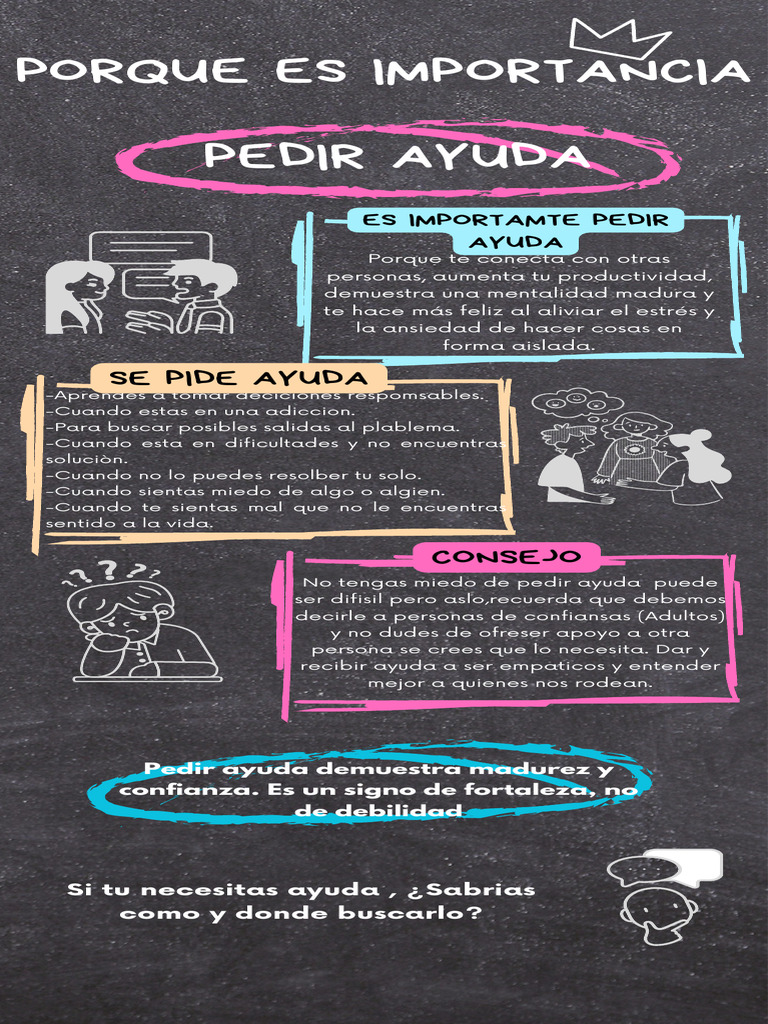 PORQUE ES IMPORTANCIA
PEDIR AYUDA
ES IMPORTAMTE PEDIR
AYUDA
Porque te conecta con otras
personas, aumenta tu productividad,
demuestra una mentalidad madura y
te hace más feliz al aliviar el estrés y
la ansiedad de hacer cosas en
forma aislada.
SE PIDE AYUDA
-Aprendes a tomar deciciones responmsables.
-Cuando estas en una adiccion.
-Para buscar posibles salidas al plablema.
-Cuando esta en dificultades y no encuentras
soluciòn.
-Cuando no lo puedes resolber tu solo.
-Cuando sientas miedo de algo o algien.
-Cuando te sientas mal que no le encuentras
sentido a la vida.
CONSEJO
No tengas miedo de pedir ayuda puede
ser difisil pero aslo,recuerda que debemos
decirle a personas de confiansas (Adultos)
y no dudes de ofreser apoyo a otra
persona se crees que lo necesita. Dar y
recibir ayuda a ser empaticos y entender
mejor a quienes nos rodean.
Pedir ayuda demuestra madurez y
confianza. Es un signo de fortaleza, no
de debilidad
Si tu necesitas ayuda , ¿Sabrias
como y donde buscarlo?